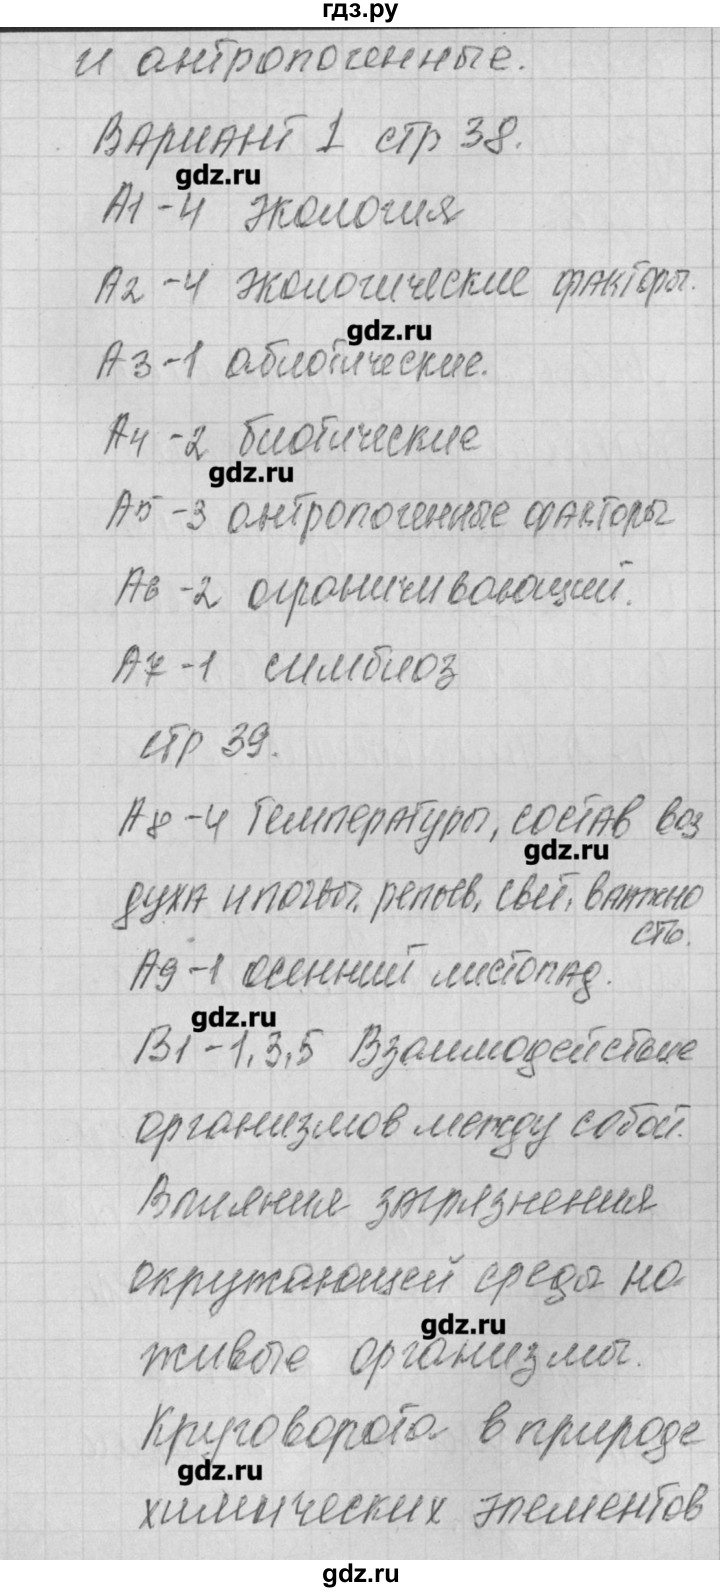 гдз.ру
и антропогенные.
Вариант 1 стр 38.
gdz.ru
А1-4 экология
А2-4 экологические факторы.
gdz.ru
А3-1 абиотические.
А4-2 биотические
gdz.ru
А5-3 антропогенные факторы
А6-2 ограничивающий.
А7-1 симбиоз
стр 39.
А8-4 температуры, состав воз
gdz.ru
духа и почвы, рельеф, свет, влажно
сть.
А9-1 осенний листопад.
gdz.ru
В1-1,3,5 Взаимодействие
организмов между собой.
Влияния загрязнения
окружающей среды на
gdz.ru
живые организмы.
Круговорота в природе
gdz.ru
химических элементов
gdz.ru